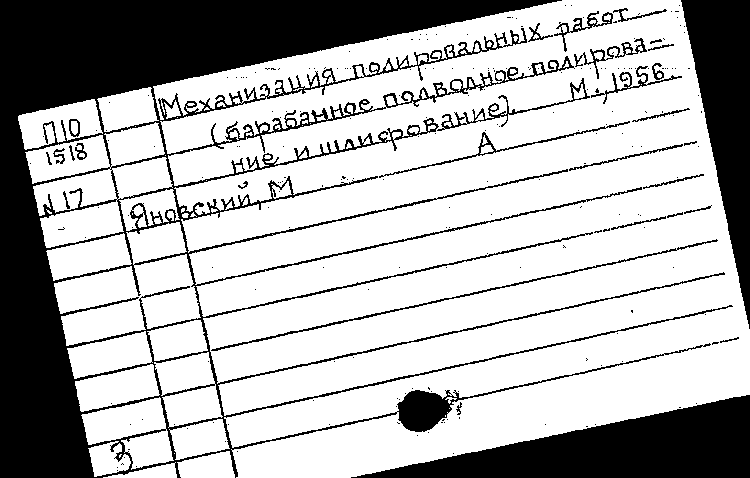 П10
1518
N17
Механизация полировальных работ
(барабанное подводное полирова=
ние и шлифование). М., 1956.
А
Яновский, М
З